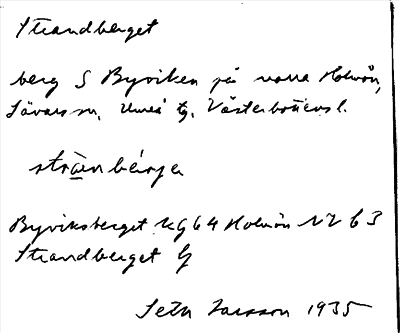 Strandberget
berg S Byviken på norra Holmön,
Sävars sn, Umeå tg, Västerbottens l.
stra̲nbärje
Byviksberget kg 64 Holmön NV b 3
Strandberget G
Seth Larsson 1935